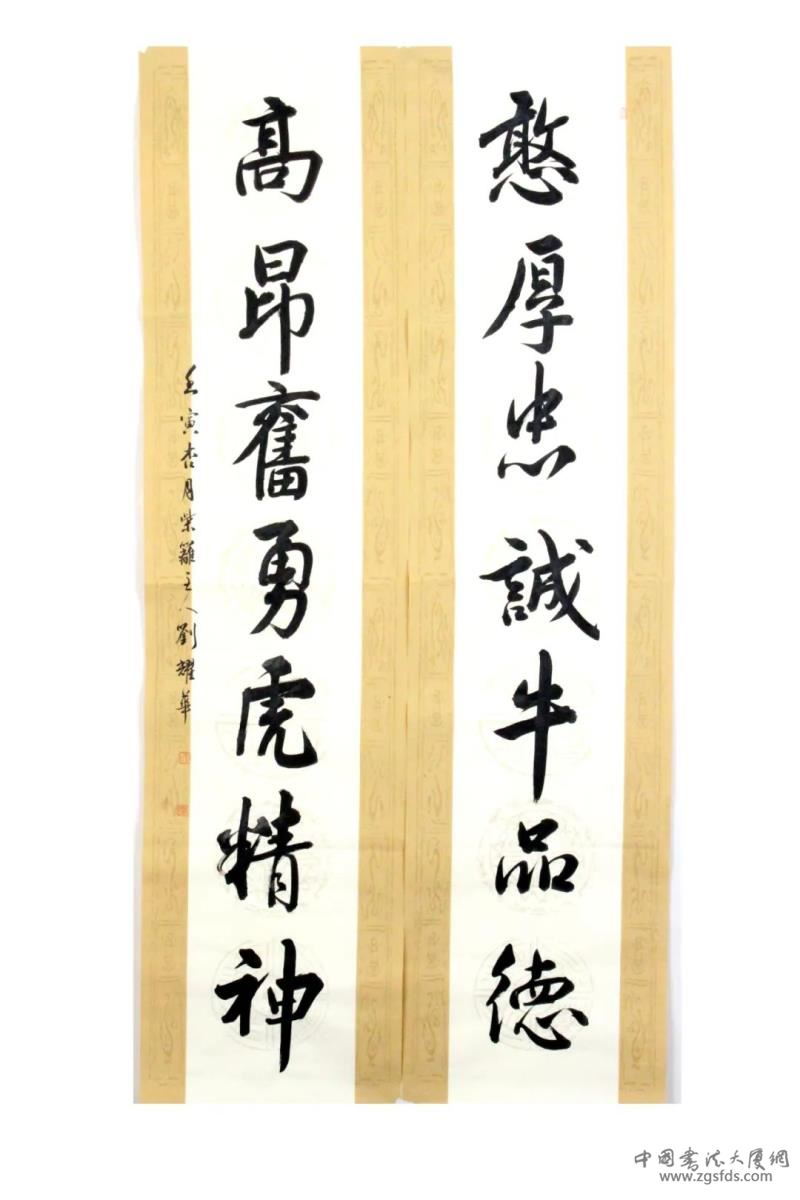 憨厚忠誠牛品德
高昂奮勇虎精神
壬寅杏月柴籬主人劉耀華
中国書法大厦網
www.zgsfds.com